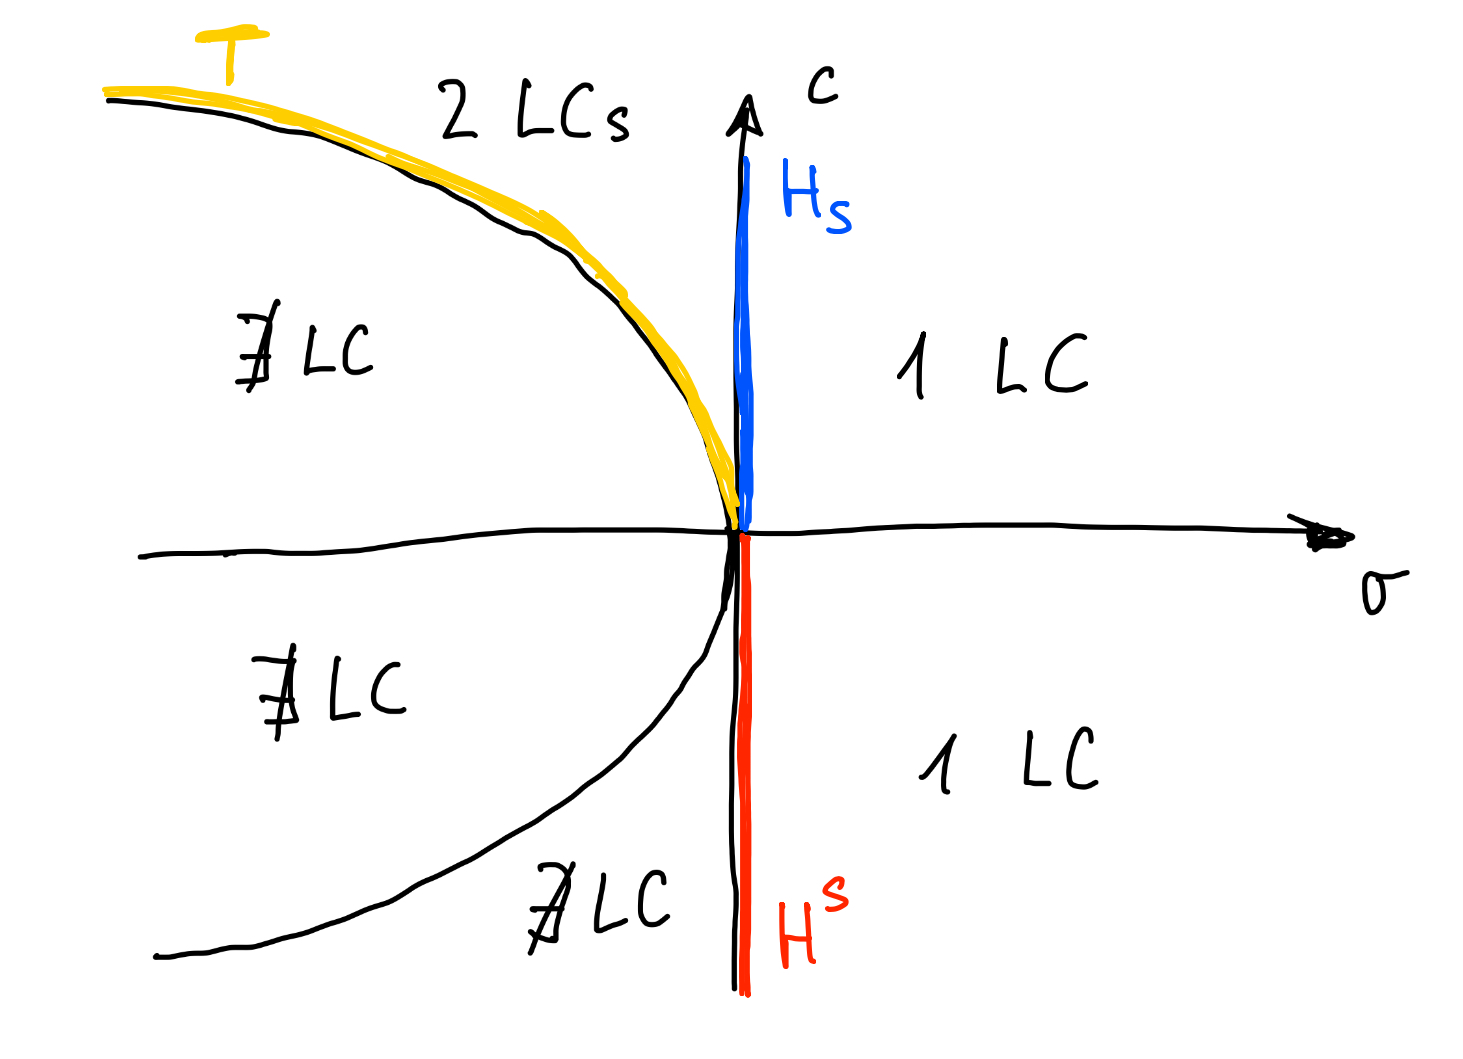 T
2 LCs
C
Hs
∄ LC
1 LC
σ
∄ LC
1 LC
∄ LC
H^s